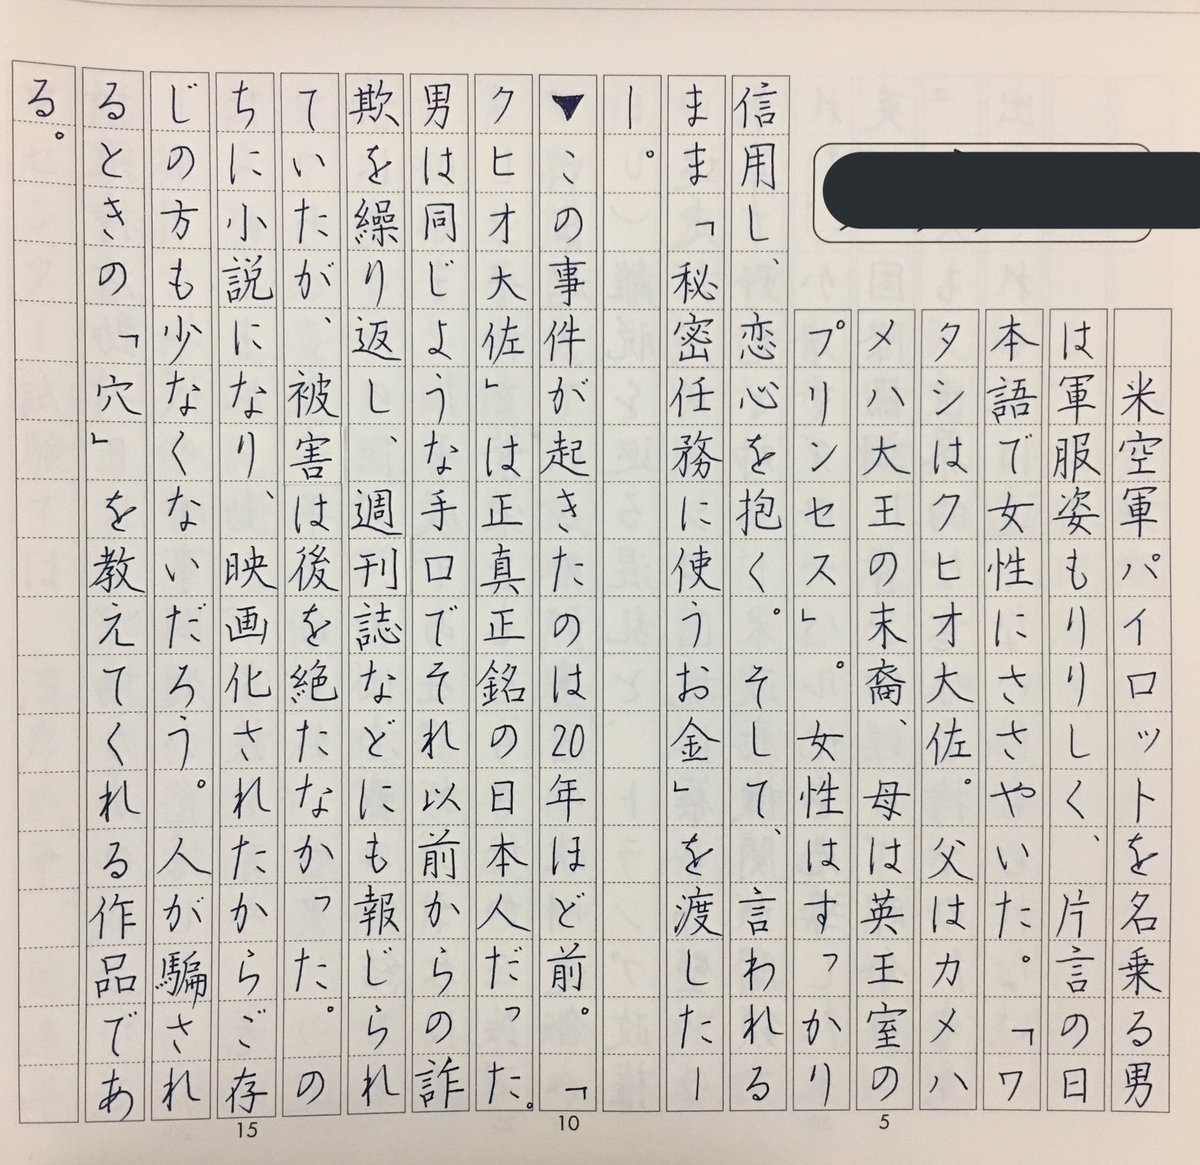 米空軍パイロットを名乗る男
は軍服姿もりりしく、片言の日
本語で女性にささやいた。「ワ
タシはクヒオ大佐。父はカメハ
メハ大王の末裔、母は英王室の
プリンセス」。女性はすっかり
信用し、恋心を抱く。そして、言われる
まま「秘密任務に使うお金」を渡したー
ー。
▼この事件が起きたのは20年ほど前。「
クヒオ大佐」は正真正銘の日本人だった。
男は同じような手口でそれ以前からの詐
欺を繰り返し、週刊誌などにも報じられ
ていたが、被害は後を絶たなかった。の
ちに小説になり、映画化されたからご存
じの方も少なくないだろう。人が騙され
るときの「穴」を教えてくれる作品であ
る。
5
10
15